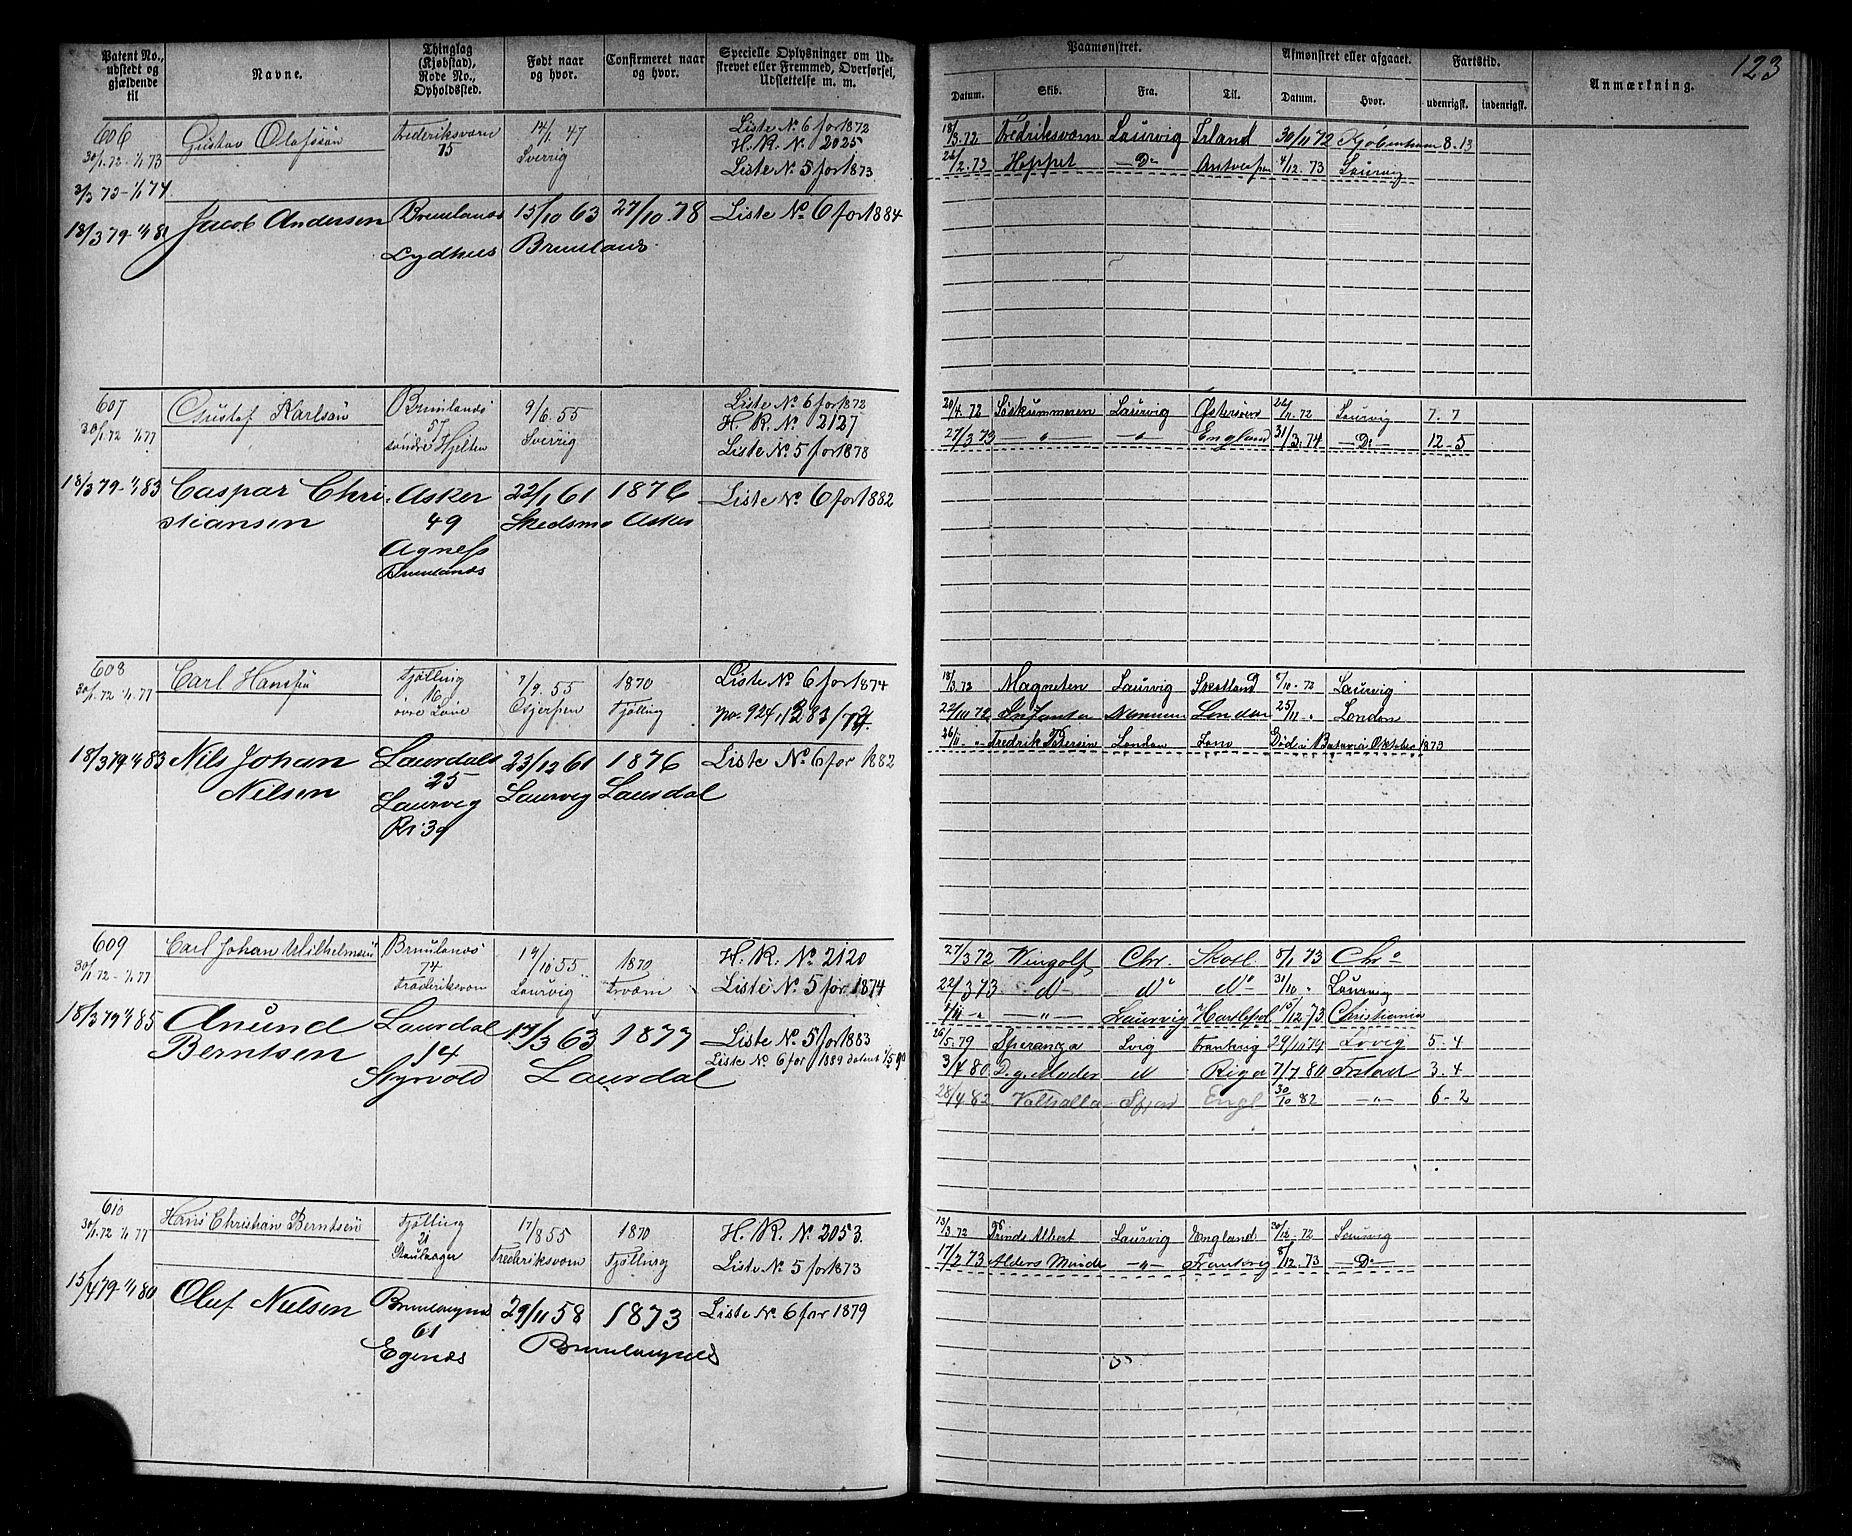 123
Patent No., udstedt og gjældende til
Navne.
Thinglag (Kjøbstad), Rode No., Opholdssted.
Født naar og hvor.
Confirmeret naar og hvor.
Specielle Oplysninger om Udskrevet eller Fremmed, Overførsel, Udslettelse m. m.
Paamønstret.
Afmønstret eller afgaaet.
Fartstid.
Anmærkning.
Datum. Skib. Fra. Til. Datum. Hvor. udenrigsk. indenrigsk.
606 Gustav Olafsson Frederiksværn 14/1 47 Liste No 6 for 1872
30/1.72-1/1 73 75 Sverrig H. R. No 2025
3/3 73-1/1 74 Liste No 5 for 1873
18/3.72 Fredriksværn Laurvig Irland 30/11 72 Kjøbenhavn 8.13
22/2.73 Hoppet —Do Antverpen 4/12.73 Laurvig
18/3 79-1/1 81 Jacob Andersen Brunlanæs 15/10 63 27/10.78 Liste No 6 for 1884
Lydhus Brunlanæs
607 Gustaf Karlsøn Brunlanæs 9/6.55 Liste No 6 for 1872
30/1.72 1/1 77 57 Sverrig H. R. No 2127
søndre Hjelten Liste No 5 for 1878
20/4.72 Søskummeren Laurvig Østersøen 22/ .72 Laurvig 7.7
27/3 73 —"— —"— England 31/3.74 —Do— 12-5
18/3 79-1/1 83 Caspar Chri- Asker 22/1 61 1876 Liste No 6 for 1882
stiansen 49 Skedsmo Asker
Agness
Brunlanæs
608 Carl Hansen Tjølling 7/9.55 1870 Liste No 6 for 1874
30/1.72 1/1.77 16 Gjerpen Tjølling No. 924,
øvre
18/3.72 Magneten Laurvig Skotland 5/10.72 Laurvig
22/10 72 London 25/11 " London
26/11 " Fredrik Petersen London Død i Batavia Oktober 1873
18/3 79 1/1 83 Nils Johan Laurdal 23/12 61 1876 Liste No 6 for 1882
Nielsen 25 Laurvig Laurdal
Laurvig
R: 39
609 Carl Johan Wilhelmsen Brunlanæs 14/10 55 1870 H. R. No 2120
30/1.72-1/1.77 74 Laurvig Frværn Liste No 5 for 1874
Frederiksværn
27/3 72 Vingolf Chr. Skotl. 5/1 73 Chra
22/3 73 Do Do Do 31/10 " Laurvig
—"— Laurvig Hartlepol 15/12 73 Christiania
26/5.79 Speranza Lvig Frankrig 29/10 79 Lvig 5-4
3/4 80 D. g. Moder Riga 7/7 80 Fr.stad 3.4
28/4 82 Valhalla Engl 30/10 82 —"— 6-2
18/3 79 1/1 85 Anund Laurdal 17/3 63 1877 Liste No 5 for 1883
Berntsen 14 Laurdal Liste No 6 for 1889
Styrvold
610 Hans Christian Berntsen Tjølling 17/8 55 1870 H. R. No 2053.
30/1.72 1/1.77 21 Frederiksværn Tjølling Liste No 5 for 1873
13/3.72 Prinds Albert Laurvig England 20/12.72 Laurvig
17/2 73 Alders Minde —"— Frankrig 8/12.73 —Do—
15/4 79-1/1 80 Oluf Nielsen Brunlangnæs 29/11 58 1873 Liste No 6 for 1879
61 Brunlangnæs
Egenæs